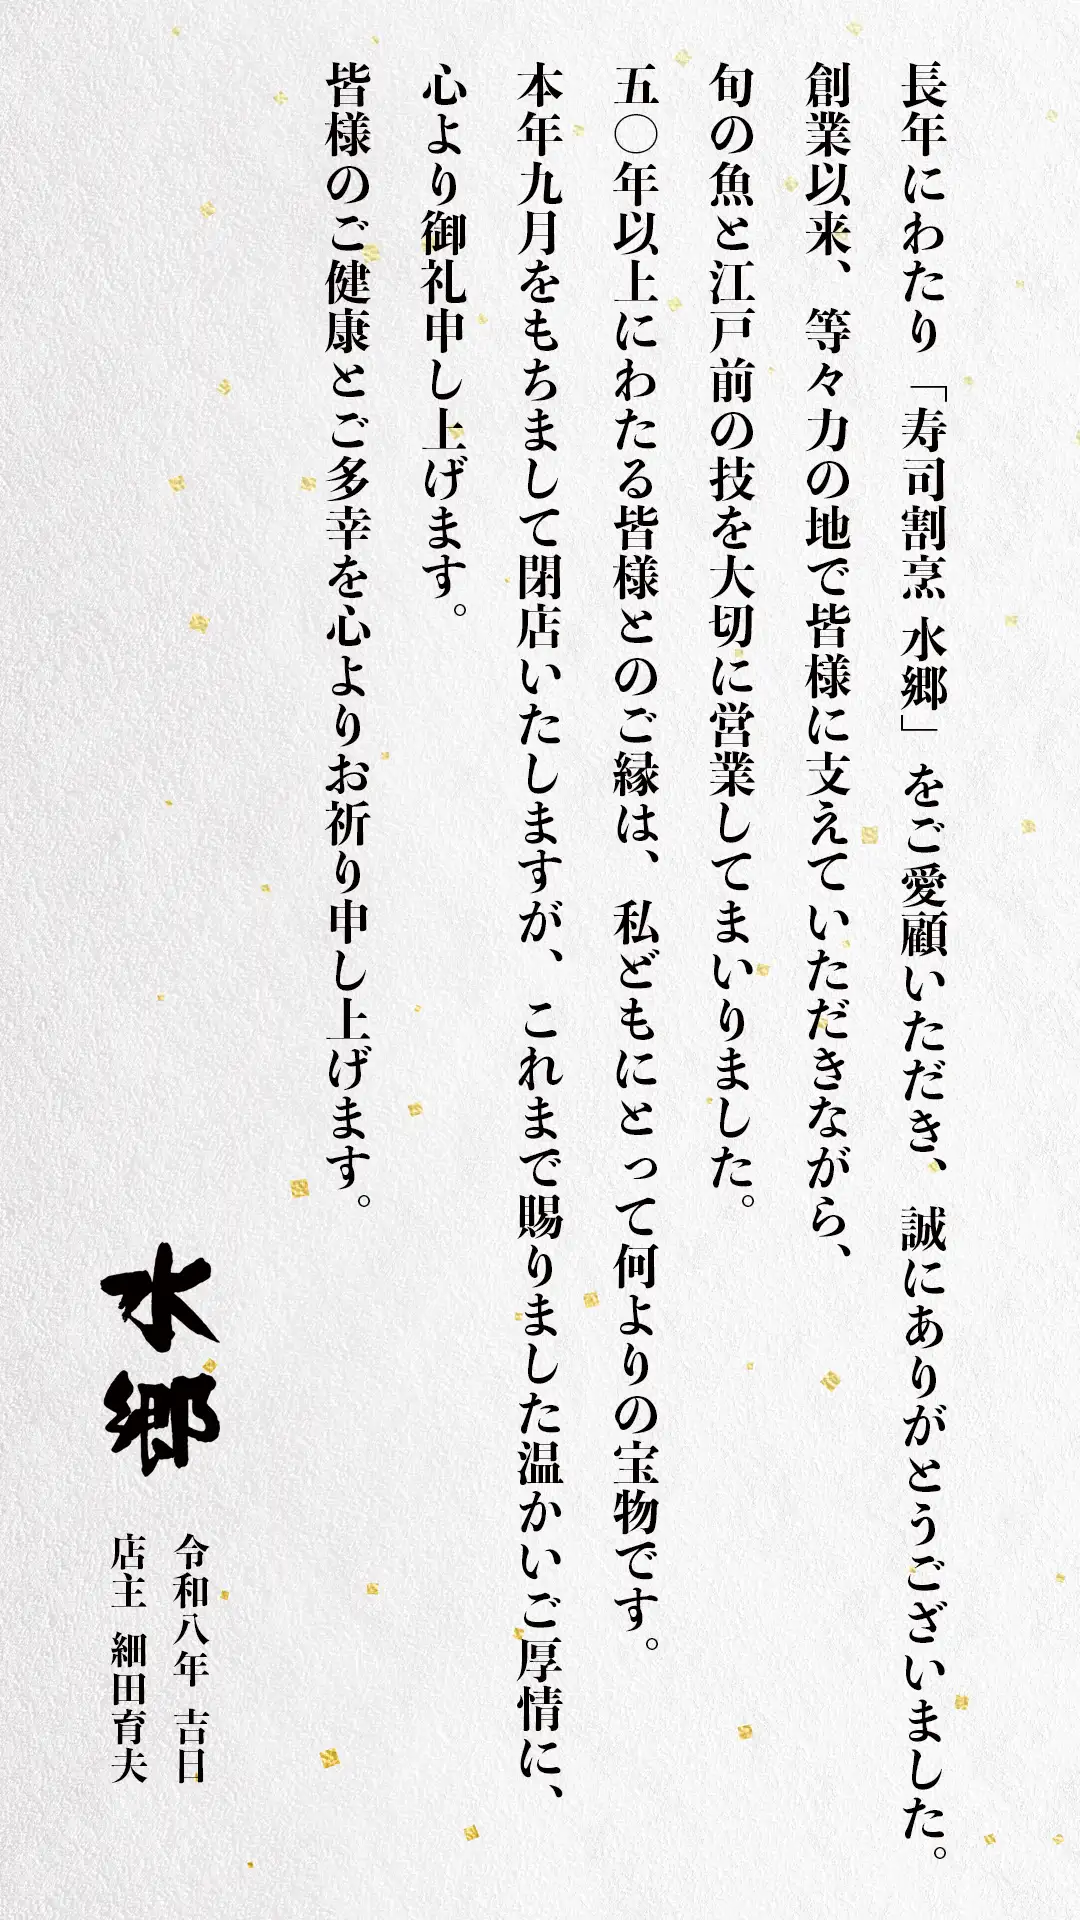 長年にわたり「寿司割烹 水郷」をご愛顧いただき、誠にありがとうございました。
創業以来、等々力の地で皆様に支えていただきながら、
旬の魚と江戸前の技を大切に営業してまいりました。
五〇年以上にわたる皆様とのご縁は、私どもにとって何よりの宝物です。
本年九月をもちまして閉店いたしますが、これまで賜りました温かいご厚情に、
心より御礼申し上げます。
皆様のご健康とご多幸を心よりお祈り申し上げます。
水郷
令和八年 吉日
店主 細田育夫